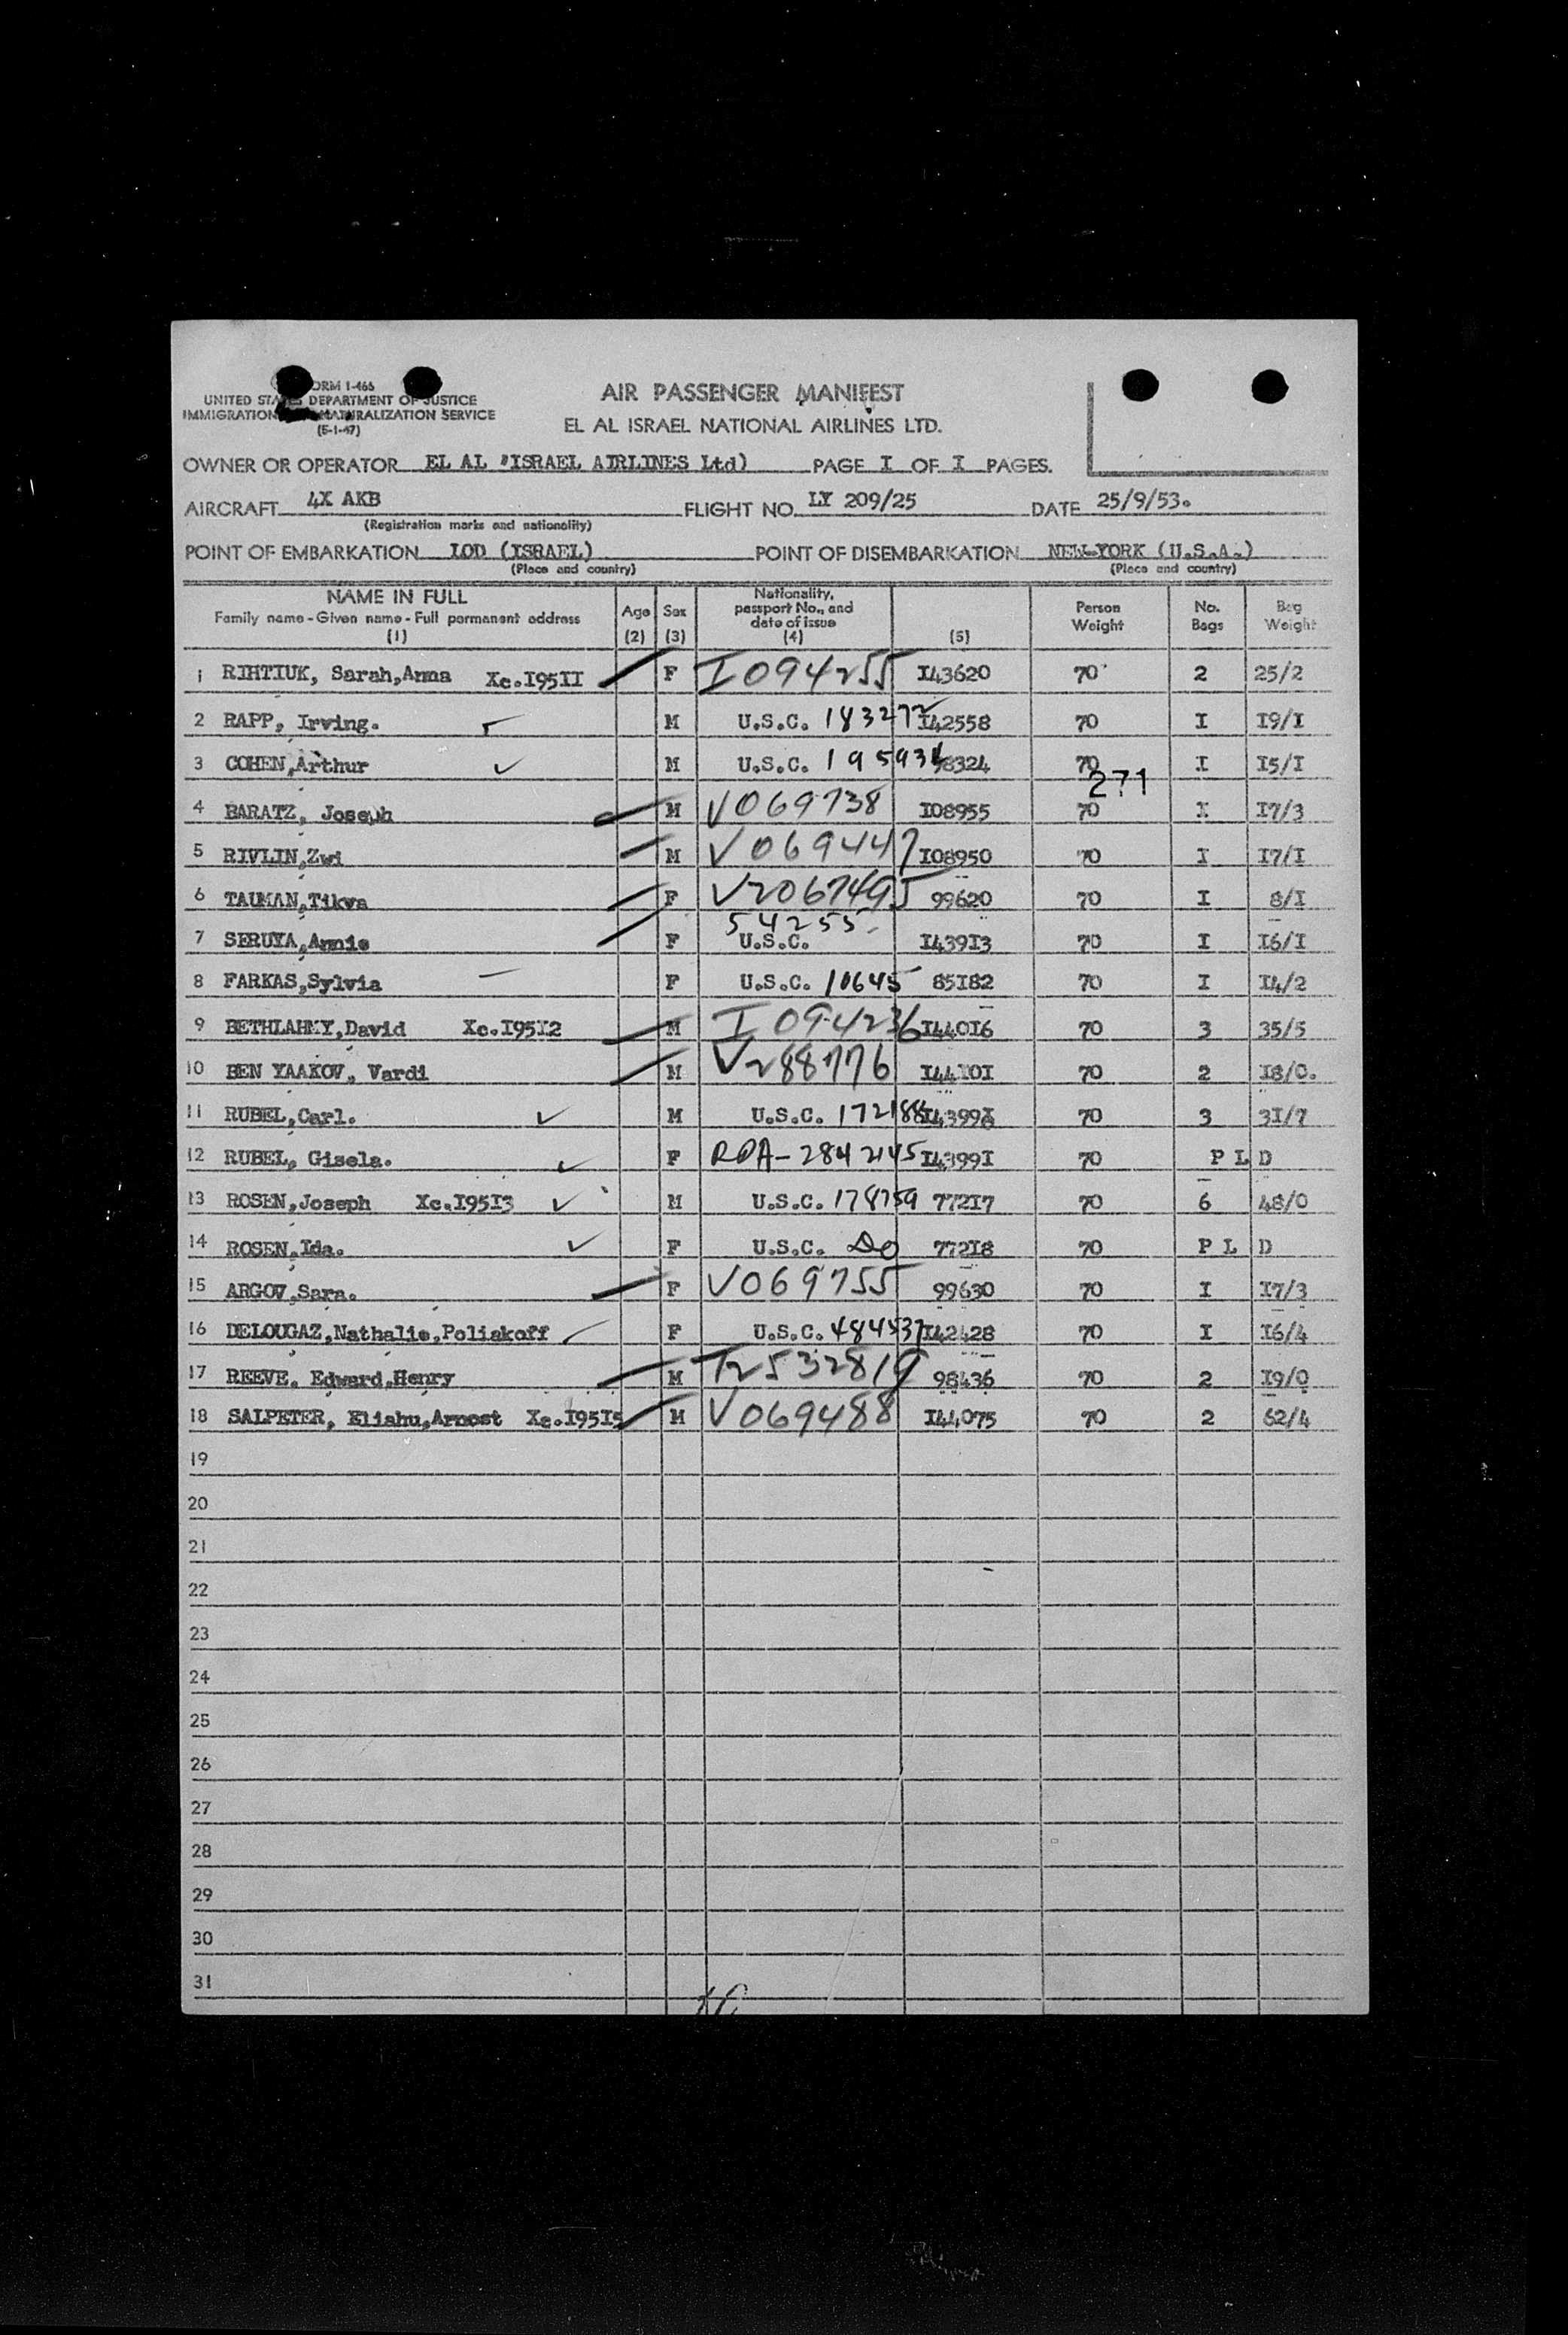 FORM I-466
UNITED STATES DEPARTMENT OF JUSTICE
IMMIGRATION NATURALIZATION SERVICE
(5-1-47)
AIR PASSENGER MANIFEST
EL AL ISRAEL NATIONAL AIRLINES LTD.
OWNER OR OPERATOR EL AL "ISRAEL AIRLINES Ltd) PAGE I OF I PAGES.
AIRCRAFT 4X AKB FLIGHT NO. LY 209/25 DATE 25/9/53.
(Registration marks and nationality)
POINT OF EMBARKATION LOD (ISRAEL) POINT OF DISEMBARKATION NEW-YORK (U.S.A.)
(Place and country) (Place and country)
NAME IN FULL Family name - Given name - Full permanent address (1) Age (2) Sex (3) Nationality, passport No., and date of issue (4) (5) Person Weight No. Bags Bag Weight
1 RIHTIUK, Sarah,Anna Xc.I95II F I094255 I43620 70 2 25/2
2 RAPP, Irving. M U.S.C. 183272 I42558 70 I I9/I
3 COHEN,Arthur M U.S.C. 195934 98324 70 I I5/I
271
4 BARATZ, Joseph M V069738 I08955 70 I I7/3
5 RIVLIN,Zwi M V069447 I08950 70 I I7/I
6 TAUMAN,Tikva F V2067495 99620 70 I 8/I
7 SERUYA,Annie F 54255 U.S.C. I439I3 70 I I6/I
8 FARKAS,Sylvia F U.S.C. 10645 85I82 70 I I4/2
9 BETHLAHMY,David Xc.I95I2 M I094236 I440I6 70 3 35/5
10 BEN YAAKOV, Vardi M V288776 I44I0I 70 2 I8/0.
11 RUBEL,Carl. M U.S.C. 172188 I4399I 70 3 3I/7
12 RUBEL, Gisela. F RPA-2842145 I4399I 70 P L D
13 ROSEN,Joseph Xc.I95I3 M U.S.C. 178759 772I7 70 6 48/0
14 ROSEN,Ida. F U.S.C. Do 772I8 70 P L D
15 ARGOV,Sara. F V069755 99630 70 I I7/3
16 DELOUGAZ,Nathalie,Poliakoff F U.S.C. 484537 I42428 70 I I6/4
17 REEVE. Edward,Henry M T2532819 98436 70 2 I9/0
18 SALPETER, Eliahu,Arnost Xc.I95I5 M V069488 I44075 70 2 62/4
19
20
21
22
23
24
25
26
27
28
29
30
31